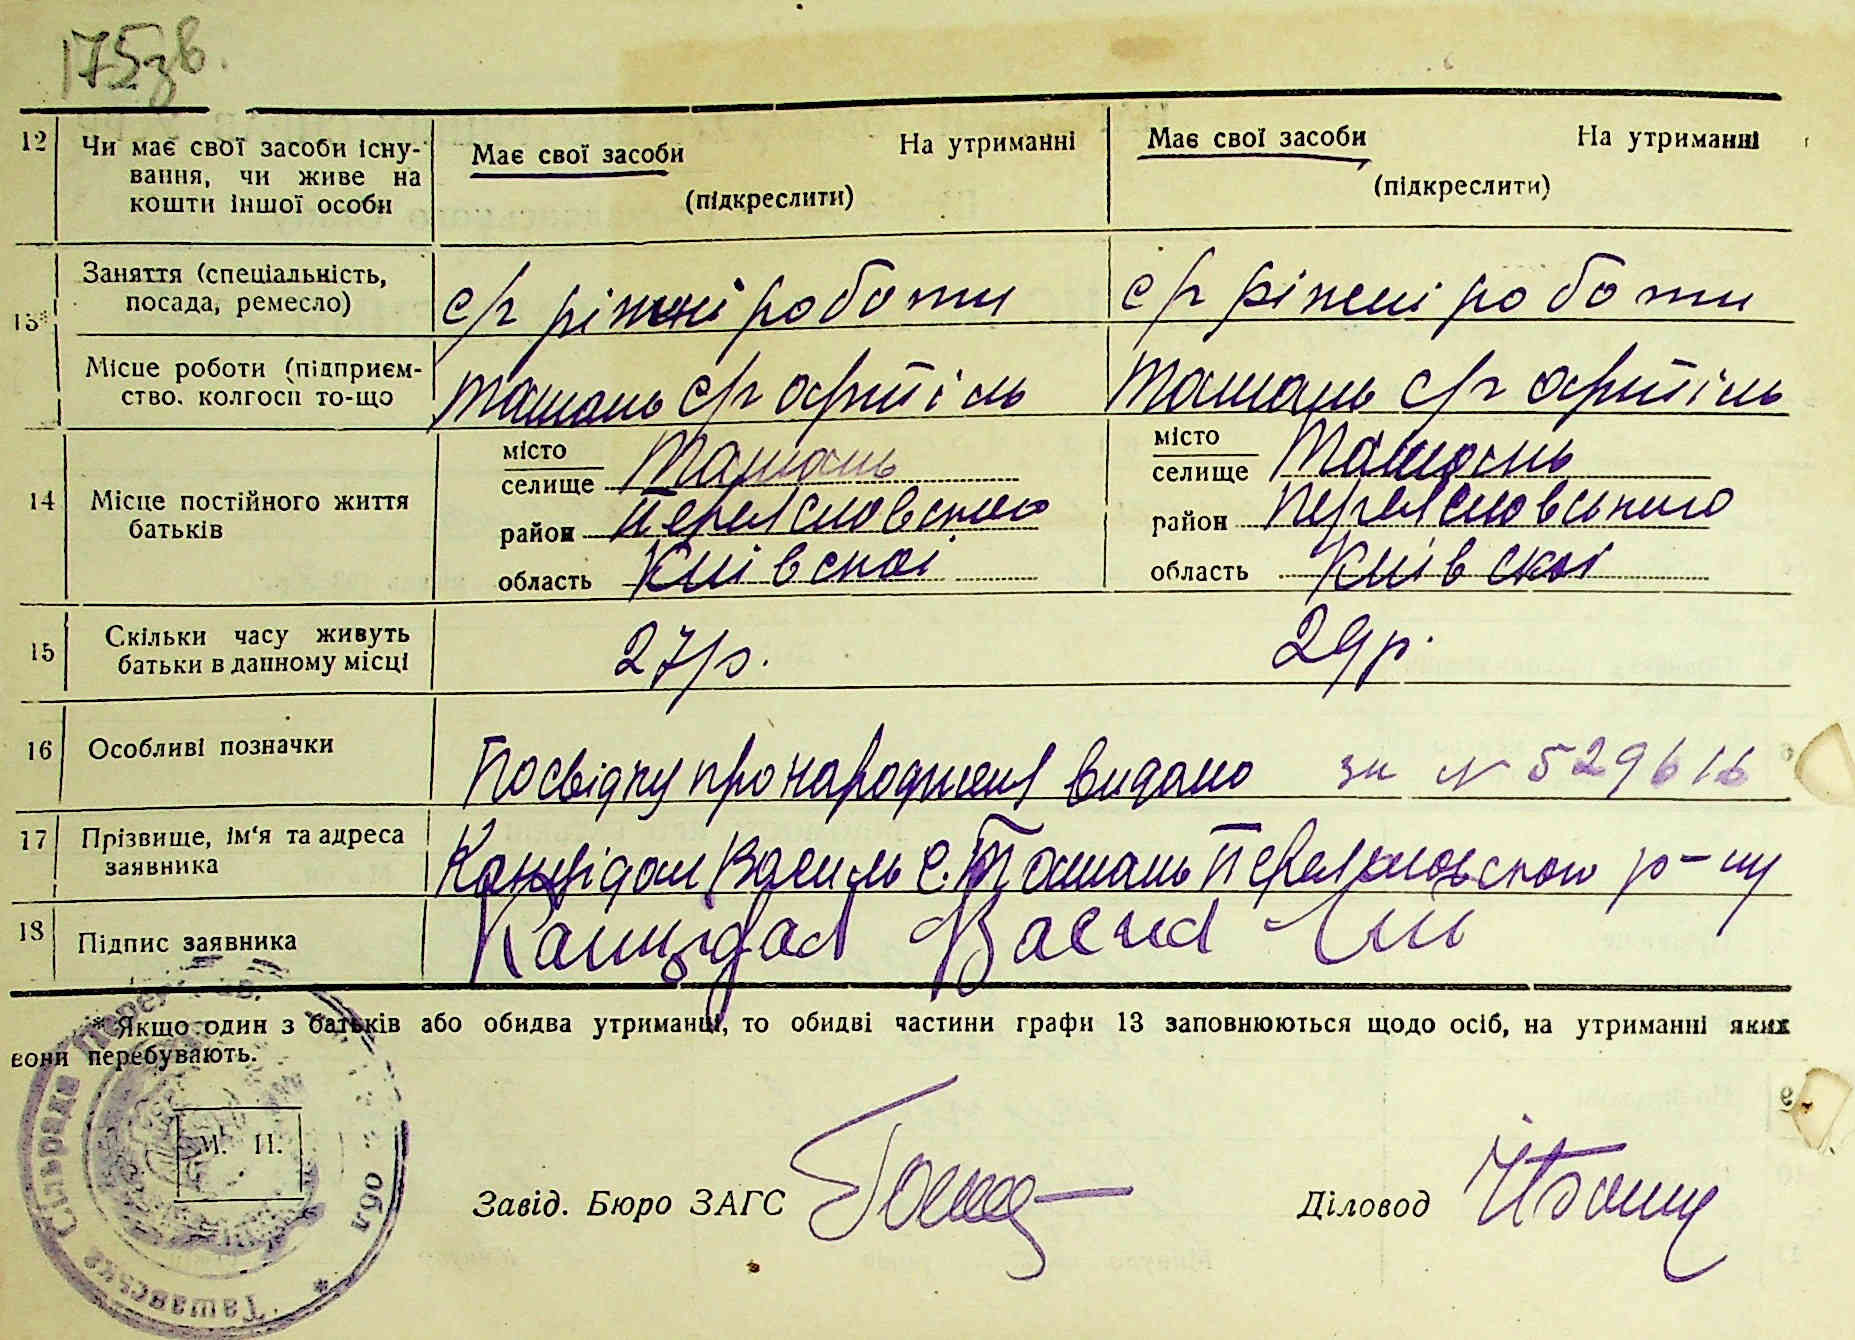 175зв.
12 Чи має свої засоби існу- Має свої засоби На утриманні Має свої засоби На утриманні
вання, чи живе на
кошти іншої особи (підкреслити) (підкреслити)
13* Заняття (спеціальність, с/г ріжні роботи с/г ріжні роботи
посада, ремесло)
Місце роботи (підприєм- Ташань с/г артіль Ташань с/г артіль
ство, колгосп то-що
14 Місце постійного життя місто місто
батьків селище Ташань селище Ташань
район Переяславського район Переяславського
область Київскої область Київскої
15 Скільки часу живуть 27р. 29р.
батьки в данному місці
16 Особливі позначки Посвідку про народженя видано за № 529616
17 Прізвище, ім'я та адреса Канцідал Василь с. Ташань Переяславского р-ну
заявника
18 Підпис заявника Канцідал Васил
* Якщо один з батьків або обидва утриманці, то обидві частини графи 13 заповнюються щодо осіб, на утриманні яких
вони перебувають.
М. П.
Ташанська Сільрада обл
Завід. Бюро ЗАГС Діловод